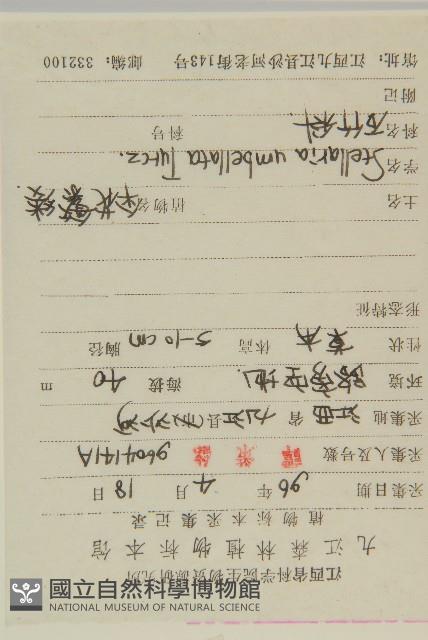 江西省科学院生物资源研究所
九江森林植物标本馆
植物标本采集记录
采集日期 96 年 4 月 18 日
采集人及号数 9604141A
采集地 江西 省 九江 县(市)沙河
环境 路旁空地. 海拔 40 m
性状 草本 体高 5-10cm 胸径
形态特征
土名 植物名 伞花繁缕
学名 Stellaria umbellata Turcz.
科名 石竹科 科号
附记
馆址：江西九江县沙河老街143号 邮编：332100
國立自然科學博物館
NATIONAL MUSEUM OF NATURAL SCIENCE